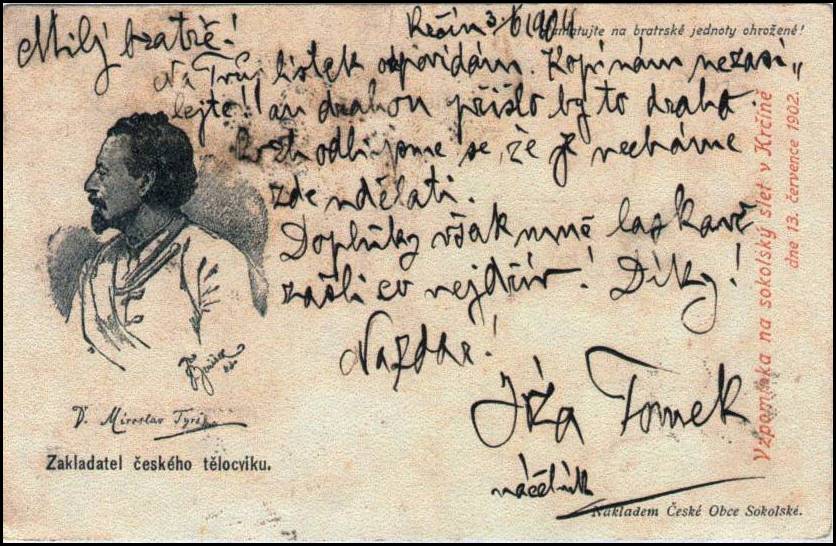 Krčín 3/6 1904
Pamatujte na bratrské jednoty ohrožené!
Milý bratře!
Na Tvůj lístek odpovídám. Kopí nám nezasí„
lejte!! an drahou přišlo by to draho.
se, že je necháme
zde udělati.
Doplňky však mně laskavě
zašli co nejdřív! Díky!
Nazdar!
Jíra Tomek
náčelník
Dr. Miroslav Tyrš
Zakladatel českého tělocviku.
Vzpomínka na sokolský slet v Krčíně
dne 13. července 1902.
Nákladem České Obce Sokolské.